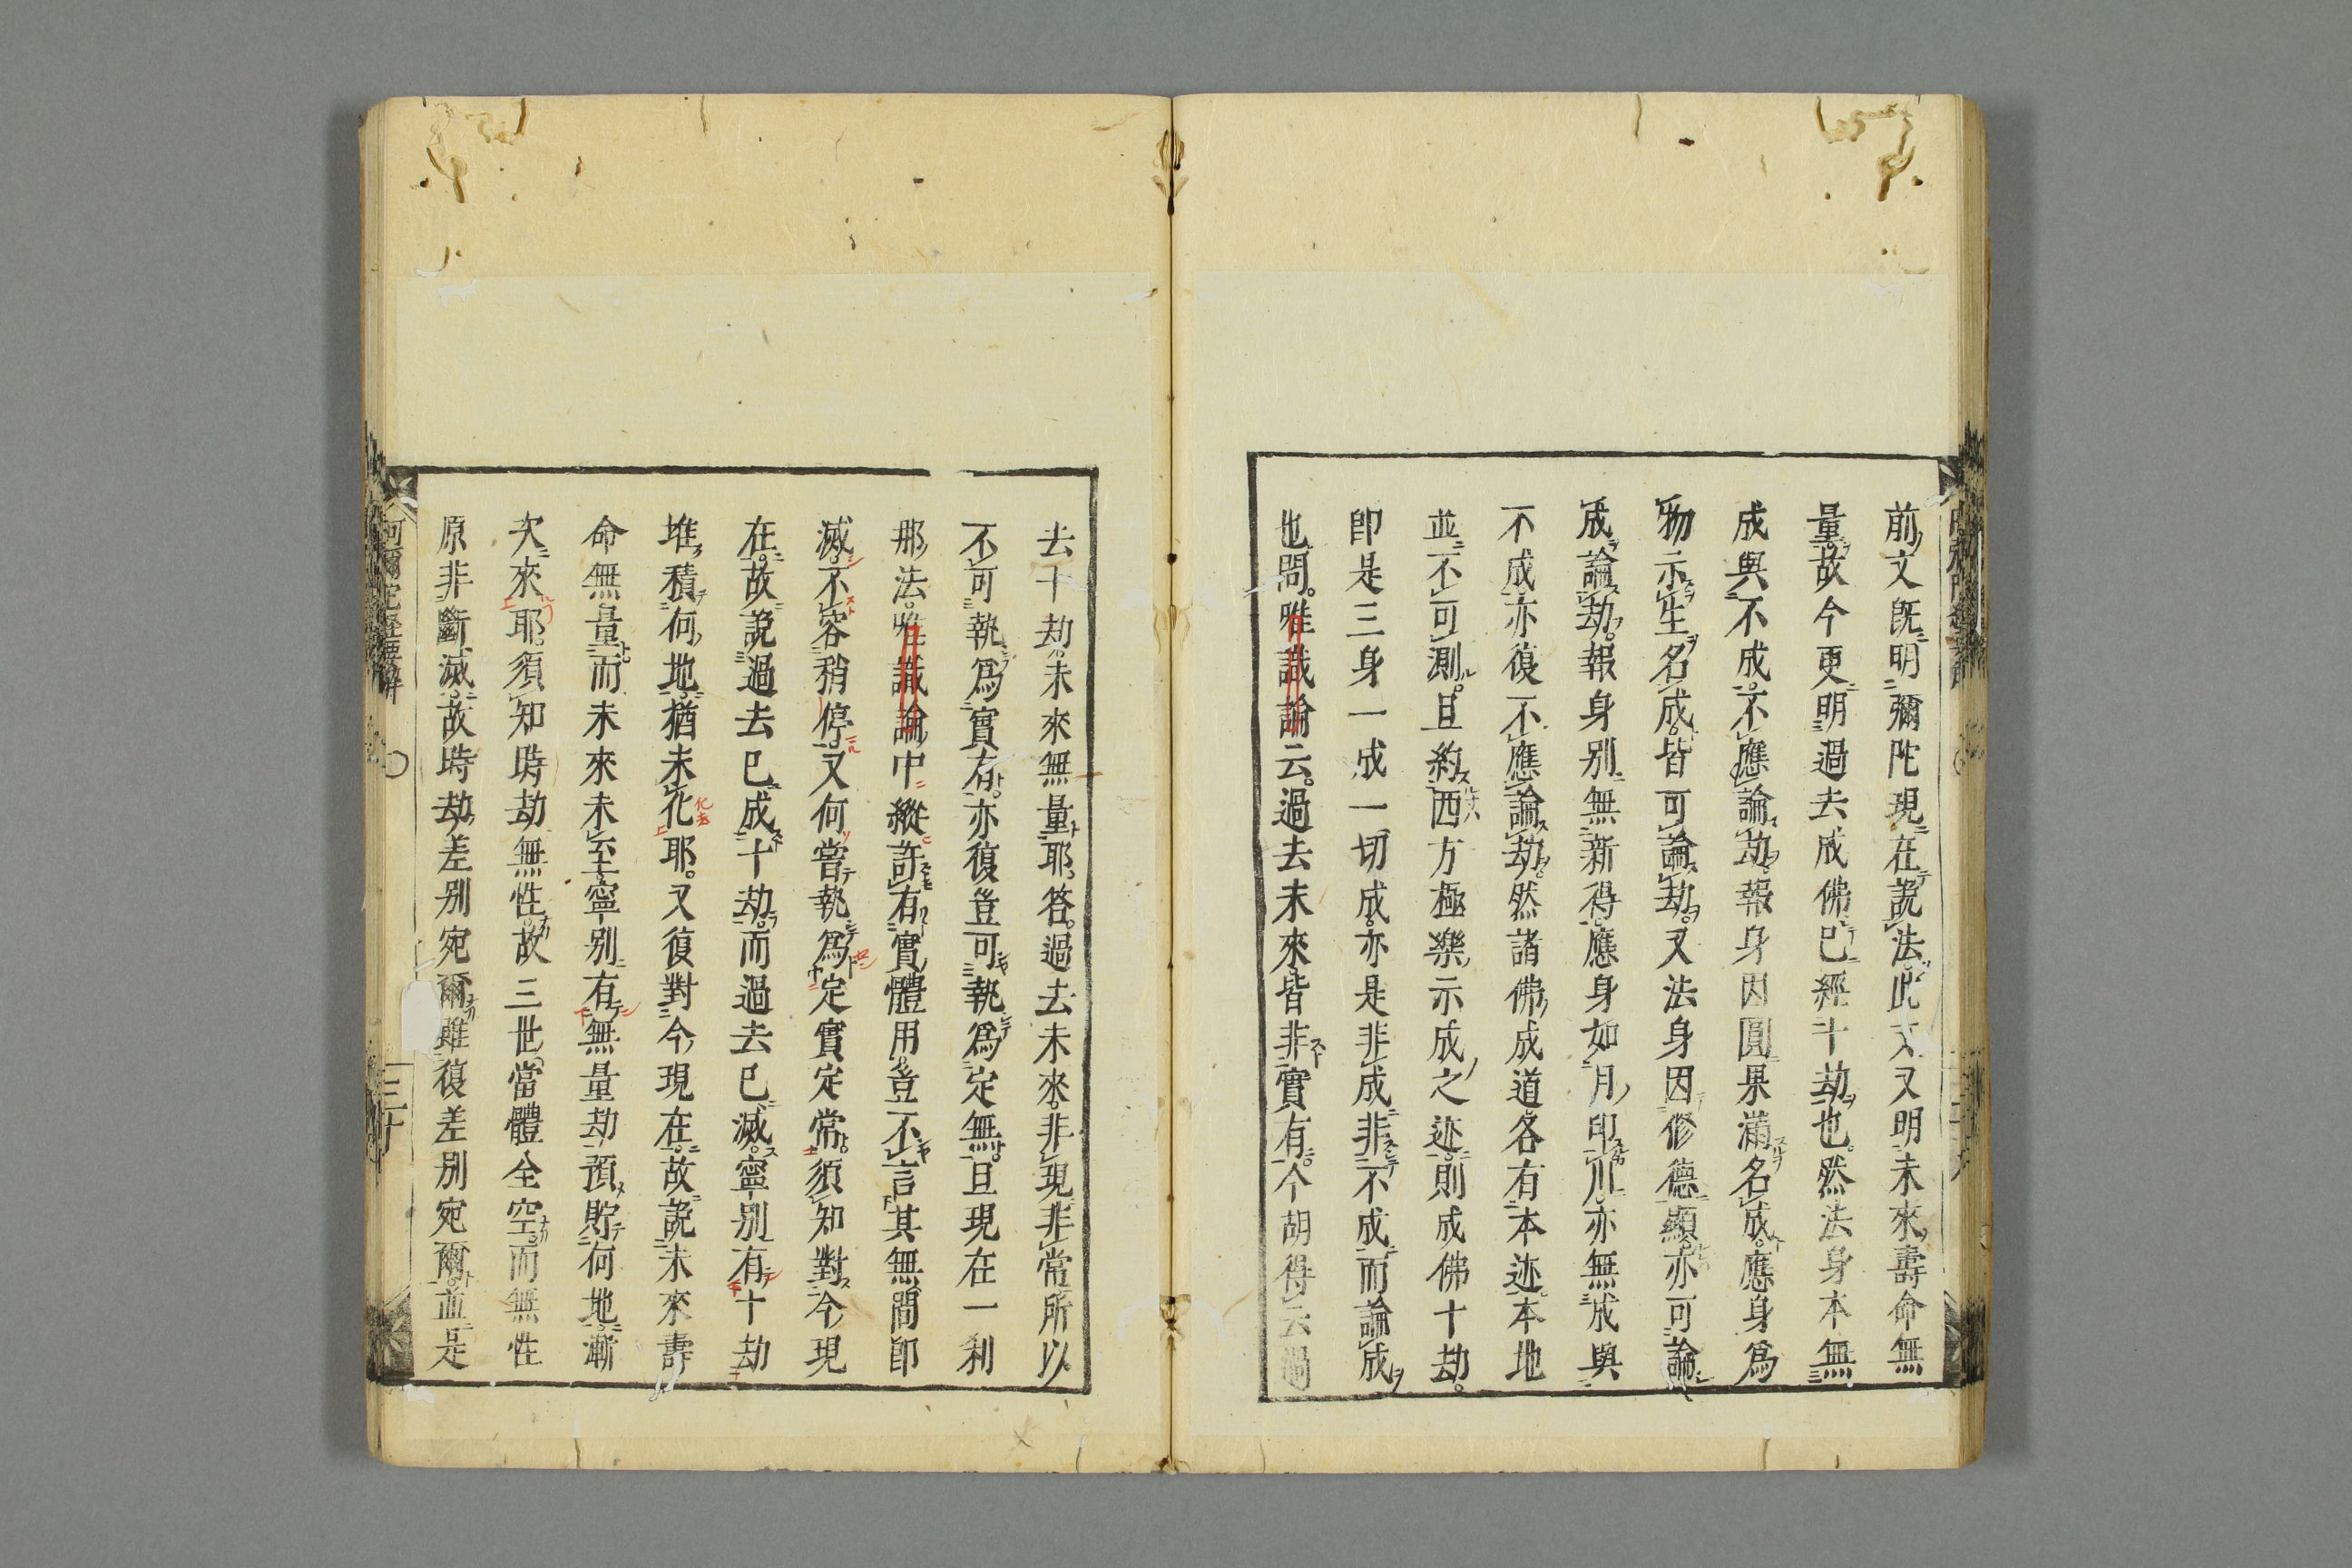 前文既明彌陀現在說法此文又明未來壽命無
量故今更明過去成佛已經十劫也。然法身本無
成與不成。不應論劫。報身因圓果滿名成。應身爲
物示生名成。皆可論劫。又法身因修德顯。亦可論
成論劫。報身別無新得。應身如月印川。亦無成與
不成。亦復不應論劫。然諸佛成道各有本迹。本地
並不可測。且約西方極樂示成之迹。則成佛十劫。
卽是三身一成一切成。亦是非成非不成而論成
也問。唯識論云。過去未來皆非實有。今胡得云過
去十劫。未來無量耶。答。過去未來。非現非常。所以
不可執爲實有。亦復豈可執爲定無。且現在一刹
那法。唯識論中縱許有實體用。豈不言其無間卽
滅。不容稍停。又何嘗執爲定實定常。須知對今現
在。故說過去已成十劫。而過去已滅。寧別有十劫
堆積何地。猶未化耶。又復對今現在。故說未來壽
命無量。而未來未至。寧別有無量劫預貯何地。漸
次來耶。須知時劫無性。故三世當體全空。而無性
原非斷滅。故時劫差別宛爾。雖復差別宛爾。並是
阿彌陀經要解 〇 三十